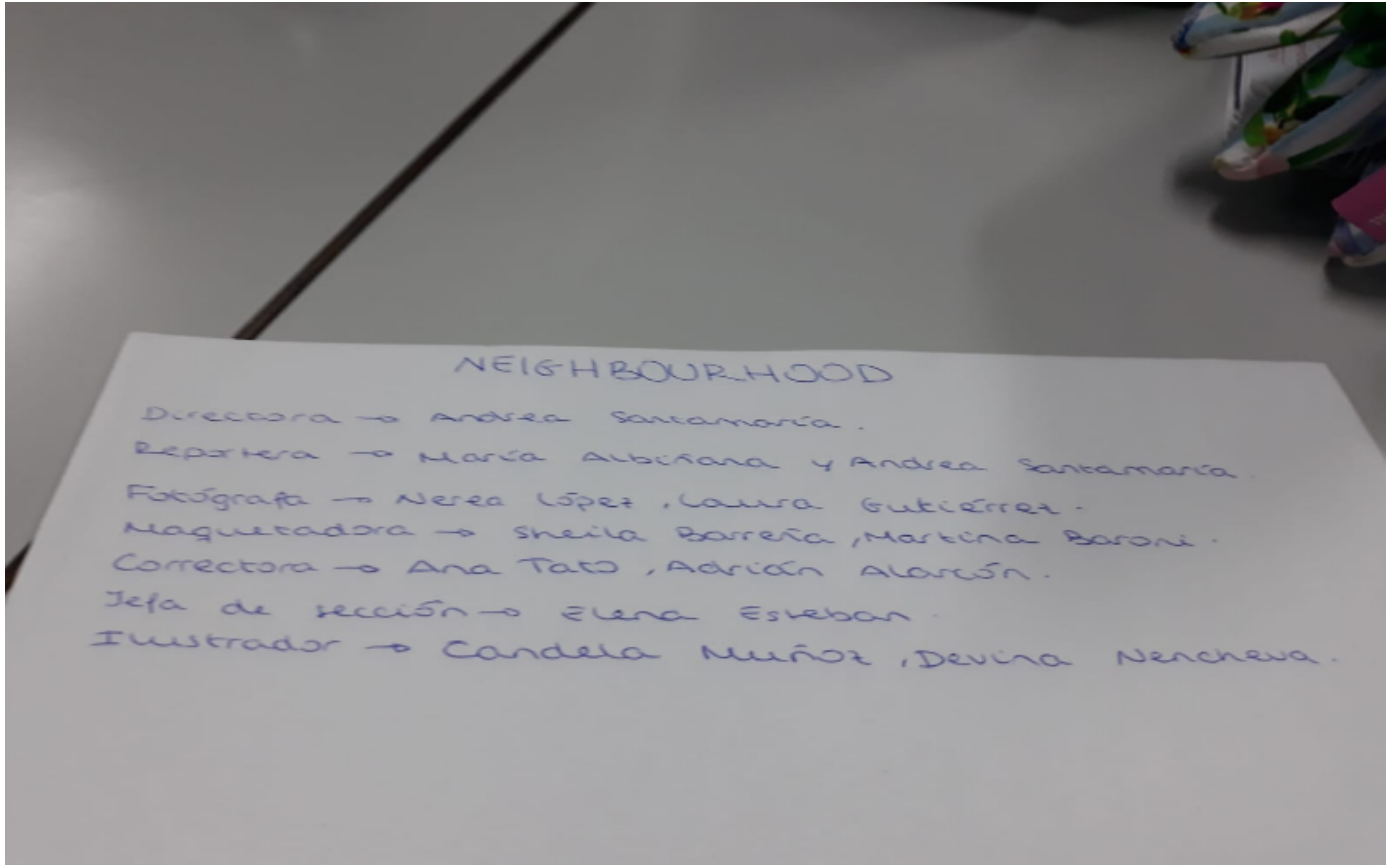 NEIGHBOURHOOD
Directora → Andrea Santamaría.
Reportera → María Albiñana y Andrea Santamaría.
Fotógrafa → Nerea López, Laura Gutiérrez.
Maquetadora → Sheila Barreña, Martina Baroni.
Correctora → Ana Tato, Adrián Alarcón.
Jefa de sección → Elena Esteban.
Ilustrador → Candela Muñoz, Devina Nencheva.